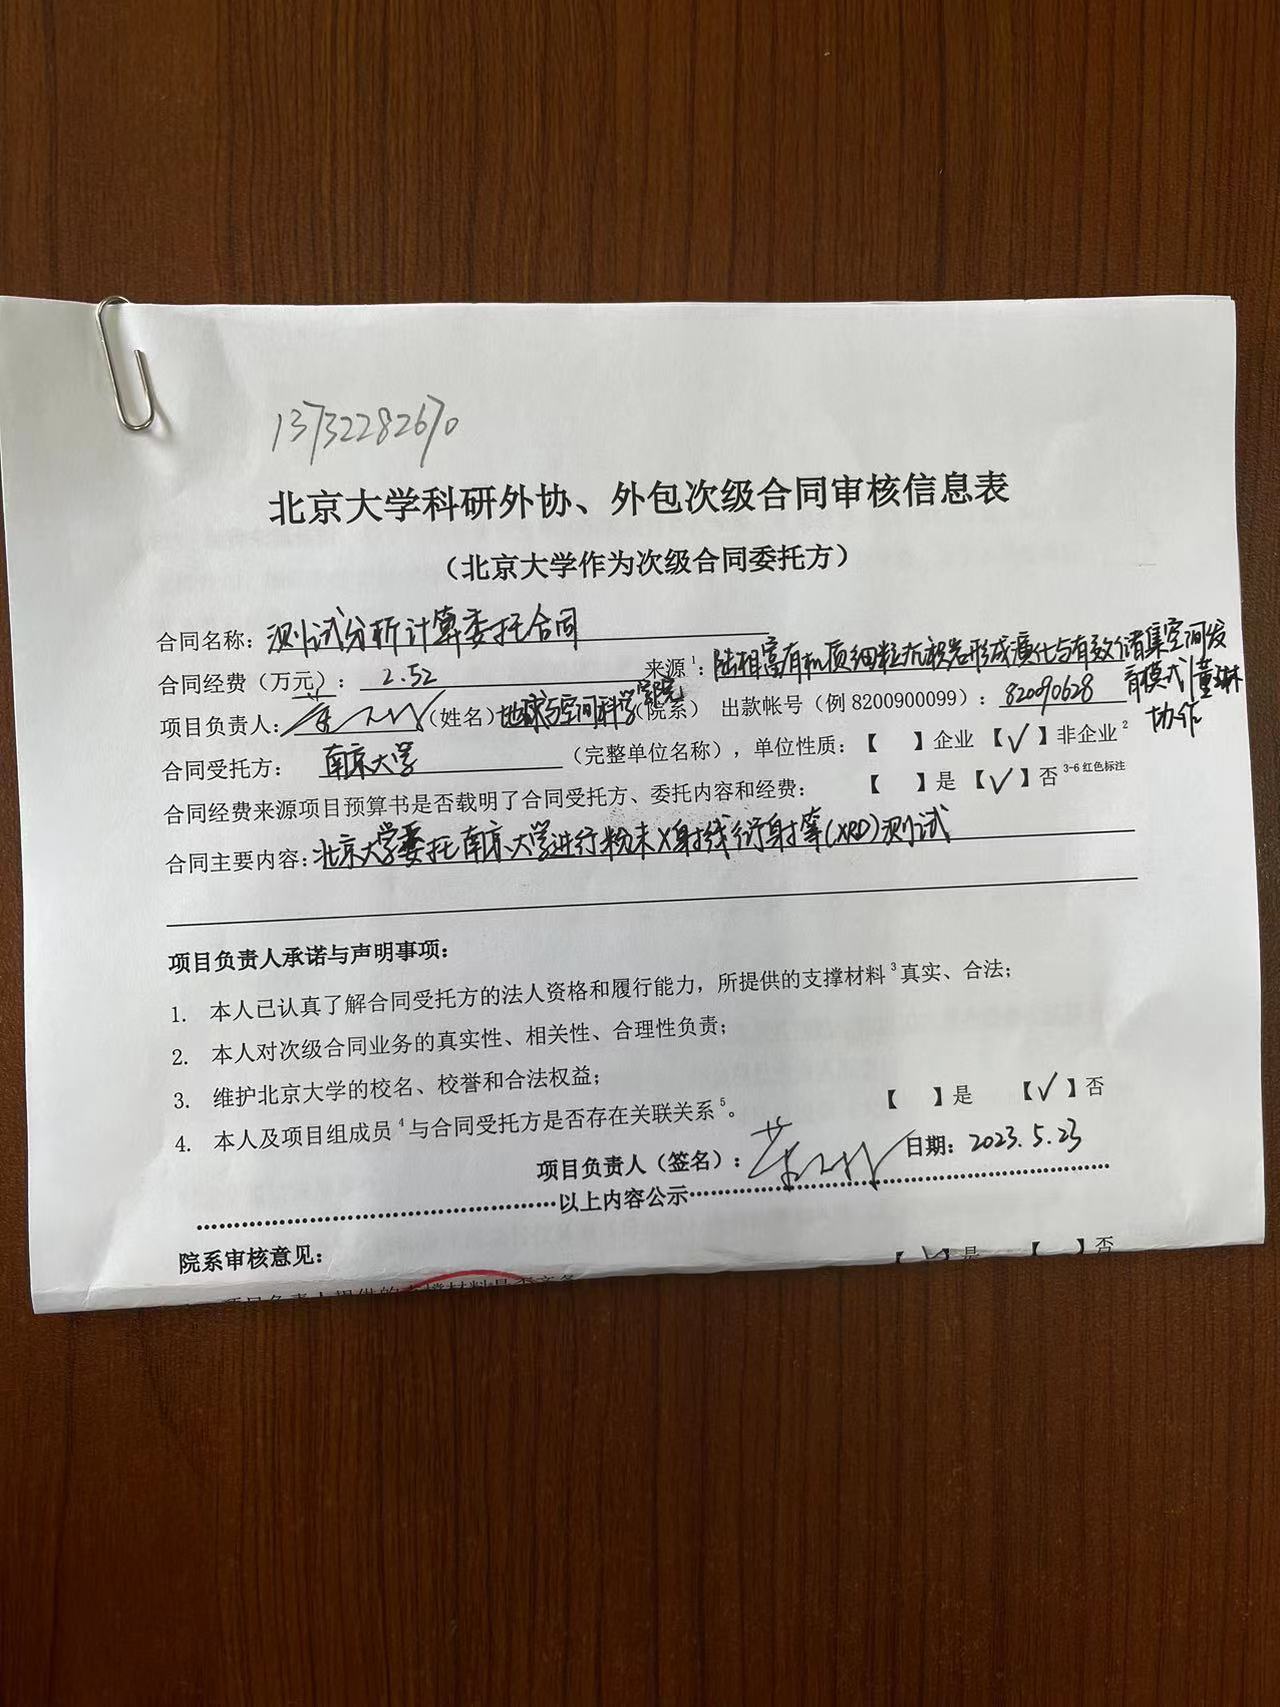 13732282670
北京大学科研外协、外包次级合同审核信息表
（北京大学作为次级合同委托方）
合同名称：测试分析计算委托合同
合同经费（万元）：2.52 来源1：陆相富有机质细粒沉积岩形成演化与有效储集空间发育模式|董琳协作
项目负责人： （姓名）地球与空间科学学院（院系） 出款帐号（例 8200900099）：82090628
合同受托方：南京大学（完整单位名称），单位性质：【 】企业【√】非企业2
合同经费来源项目预算书是否载明了合同受托方、委托内容和经费：【 】是【√】否 3-6 红色标注
合同主要内容：北京大学委托南京大学进行粉末X射线衍射等(XRD)测试
项目负责人承诺与声明事项：
1. 本人已认真了解合同受托方的法人资格和履行能力，所提供的支撑材料3真实、合法；
2. 本人对次级合同业务的真实性、相关性、合理性负责；
3. 维护北京大学的校名、校誉和合法权益；
4. 本人及项目组成员4与合同受托方是否存在关联关系5。 【 】是 【√】否
项目负责人（签名）： 日期：2023.5.23
以上内容公示
院系审核意见：
【√】是 【 】否